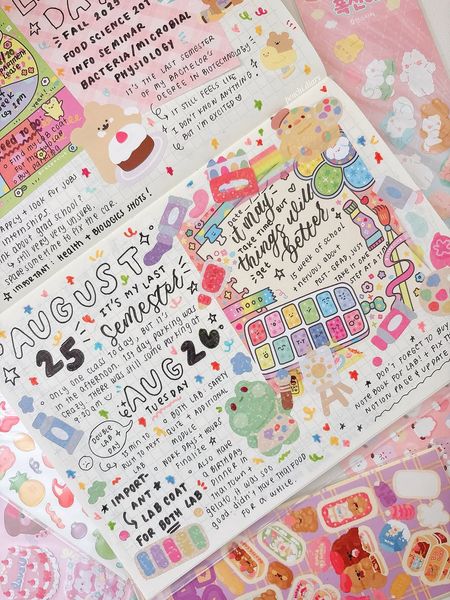 FALL 20
FOOD SCIENCE 201
INFO SEMINAR
BACTERIA/MICROBIAL
PHYSIOLOGY
IT'S THE LAST SEMESTER
OF MY BACHELOR'S
DEGREE IN BIOTECHNOLOGY
IT STILL FEELS LIKE
I DON'T KNOW ANYTHING
BUT I'M EXCITED
APPLY + LOOK FOR JOBS
INTERNSHIPS.
ABOUT GRAD SCHOOL?
STILL VERY VERY UNSURE.
SPARE SOME TIME TO FIX THE CAR.
IMPORTANT: HEALTH + BIOLOGICS SHOTS!
AUGUST
25
IT'S MY LAST
SEMESTER
ONLY ONE CLASS TODAY, BUT IT'S
THE AFTERNOON. 1ST DAY PARKING WAS
CRAZY. THERE WAS STILL SOME PARKING AT
9:30AM
DOUBLE
LAB
DAY
AUG 26
TUESDAY
5 MIN TO
RUN TO NEXT
LAB
BOTH LAB SAFETY
QUIZ + ADDITIONAL
MODULE
WORK DAYS + HOURS
FINALIZE
IMPORT-
ANT
LAB COAT
FOR BOTH LAB
ALSO HAVE
A BIRTHDAY
DINNER IN
THAI TOWN +
GELATO. IT WAS SOO
GOOD. DIDN'T HAVE THAI FOOD
FOR A WHILE.
it may
TAKE TIME BUT
things will
get better
15 WEEK OF SCHOOL
NERVOUS ABOUT
POST-GRAD. JUST
TAKE IT ONE
STEP AT A
MOOD
DON'T FORGET TO BUY
NOTEBOOK FOR LAB! + FIX THE
NOTION PAGE + UPDATE